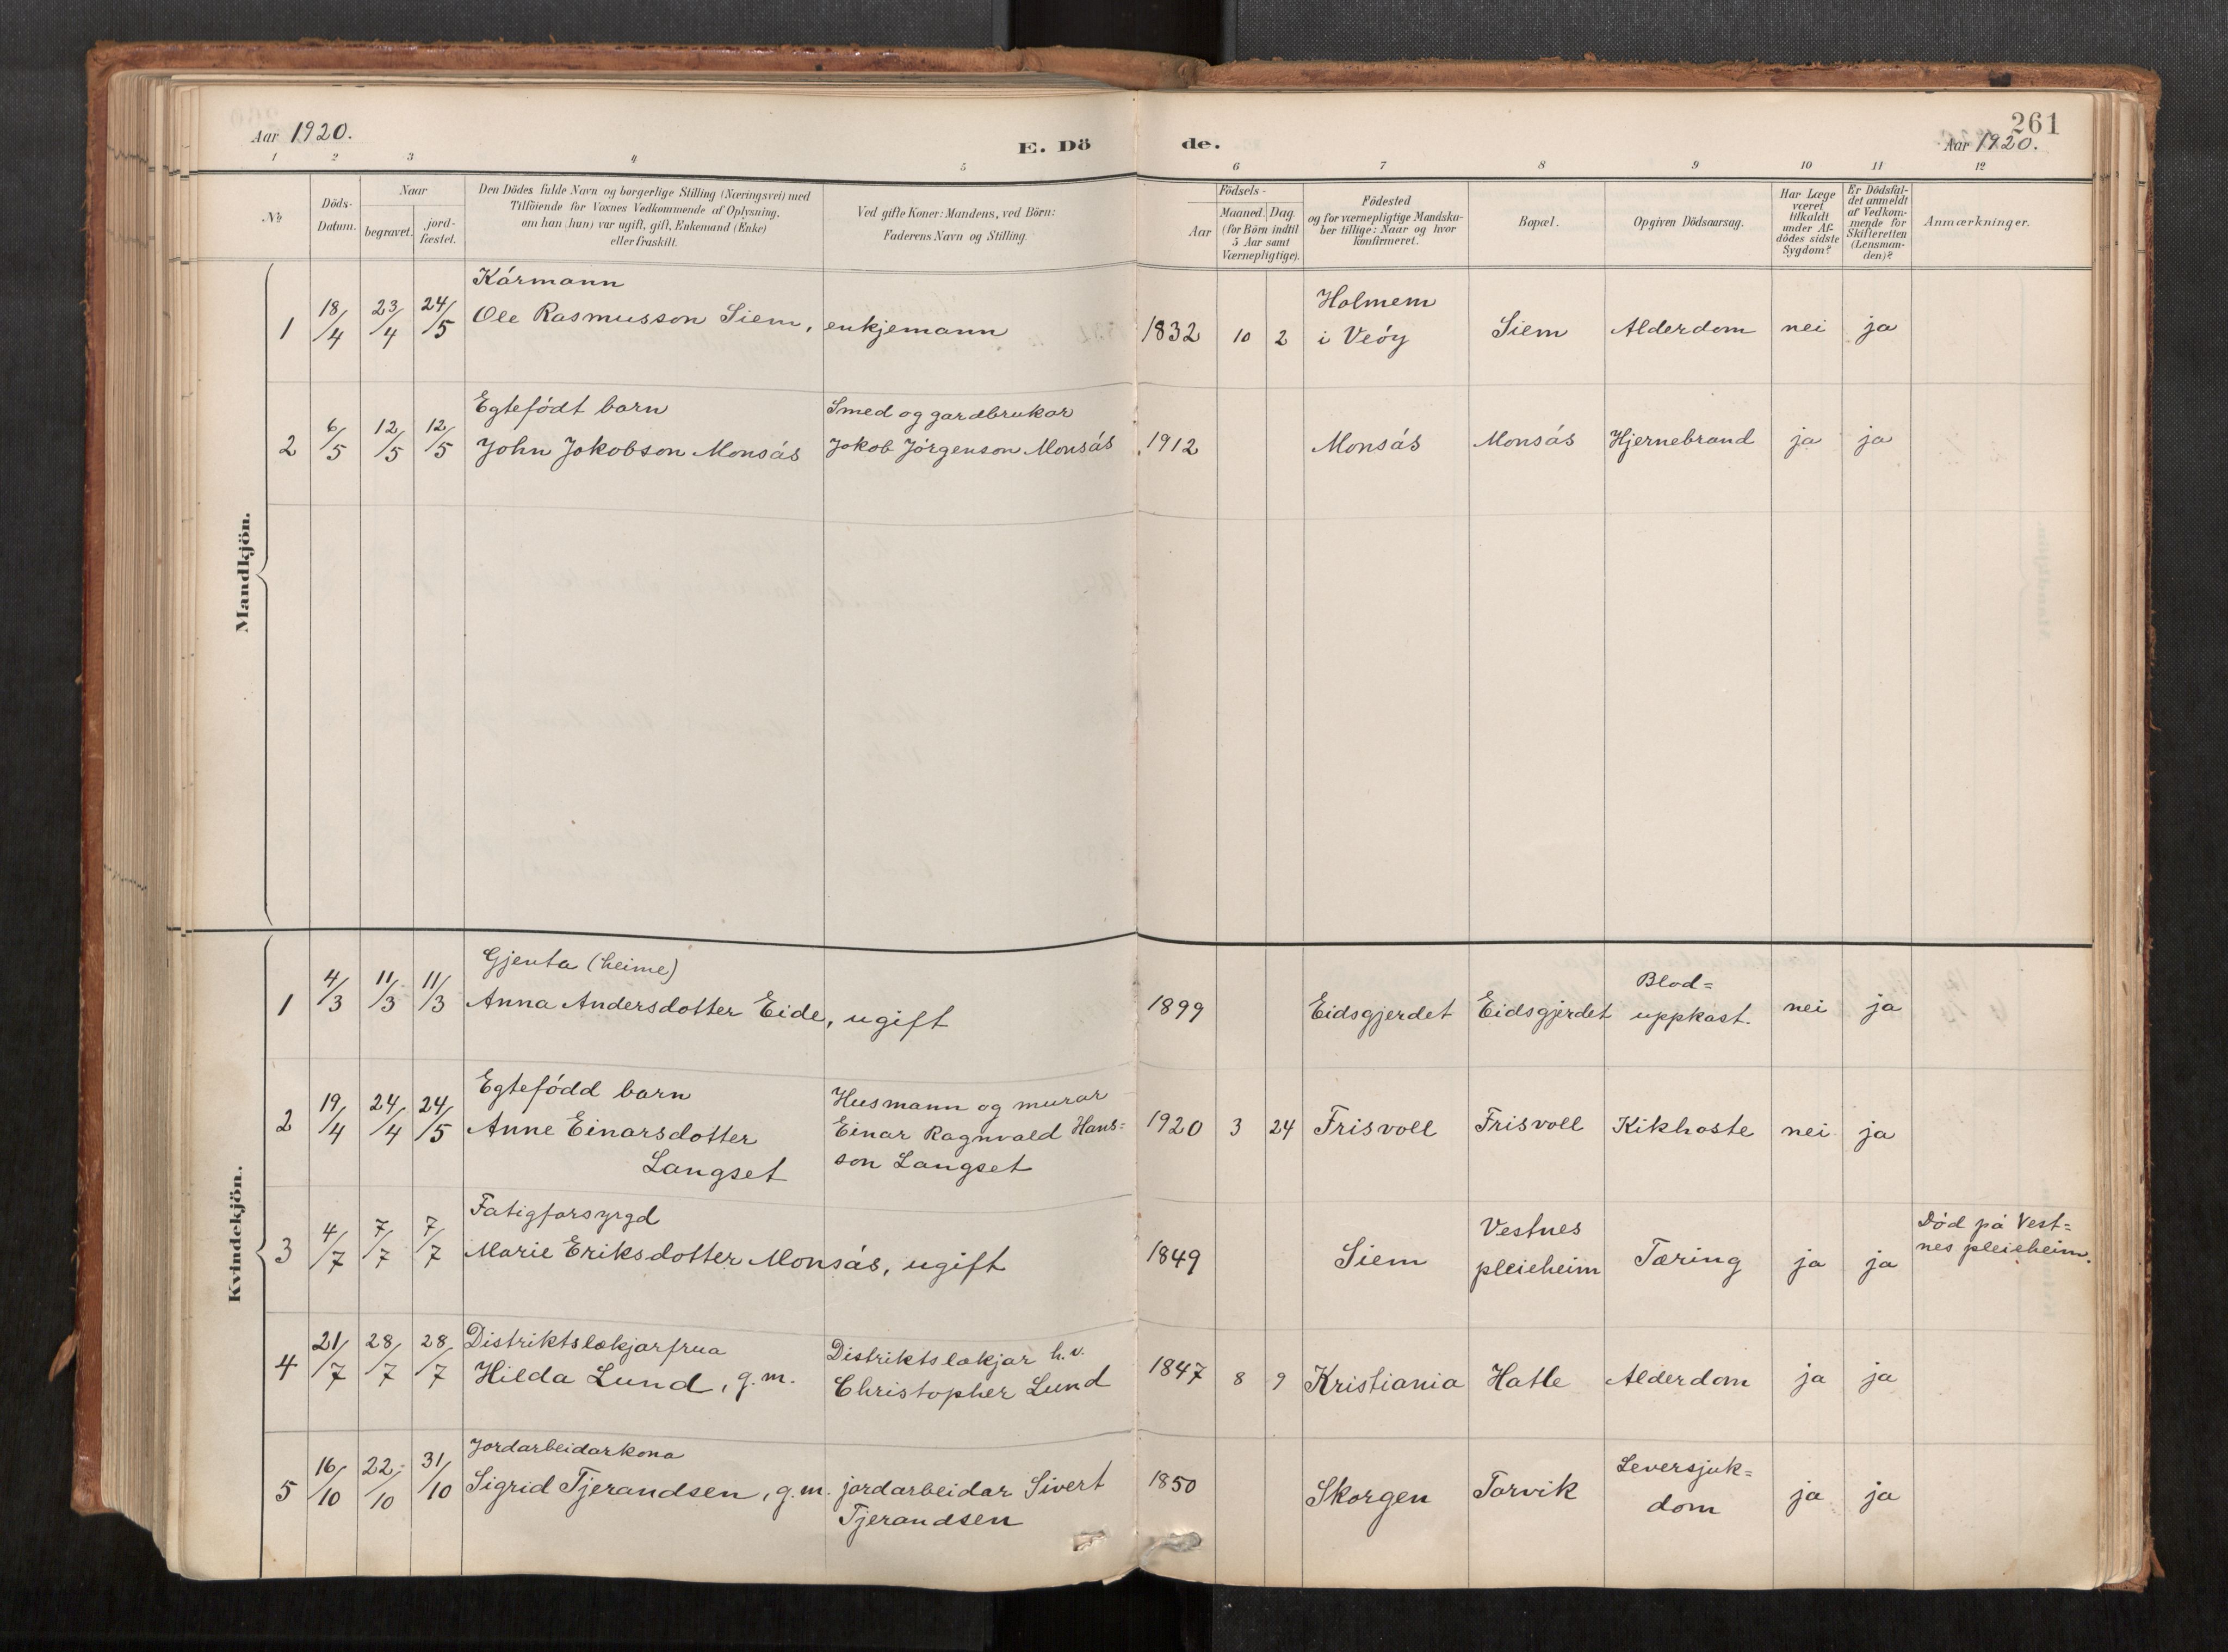 Aar 1920.
E. Dö
de.
261
Aar 1920.
1 2 3 4 5 6 7 8 9 10 11 12
No
Döds-
Datum.
Naar
begravet.
jord-
fæstet.
Den Dödes fulde Navn og borgerlige Stilling (Næringsvei) med
Tilföiende for Voxnes Vedkommende af Oplysning,
om han (hun) var ugift, gift, Enkemand (Enke)
eller fraskilt.
Ved gifte Koner: Mandens, ved Börn:
Faderens Navn og Stilling.
Födsels-
Aar
Maaned. Dag.
(for Börn indtil
5 Aar samt
Værnepligtige).
Födested
og for værnepligtige Mandska-
ber tillige: Naar og hvor
konfirmeret.
Bopæl.
Opgiven Dödsaarsag.
Har Læge
været
tilkaldt
under Af-
dödes sidste
Sygdom?
Er Dödsfal-
det anmeldt
af Vedkom-
mende for
Skifteretten
(Lensman-
den)?
Anmærkninger.
Mandkjön.
Kårmann
Holmem
1 18/4 23/4 24/5 Ole Rasmusson Siem, enkjemann 1832 10 2 i Veöy Siem Alderdom nei ja
Egtefödt barn Smed og gardbrukar
2 6/5 12/5 12/5 John Jakobson Monsås Jakob Jörgenson Monsås 1912 Monsås Monsås Hjernebrand ja ja
Kvindekjön.
Gjenta (heime) Blod=
1 4/3 11/3 11/3 Anna Andersdotter Eide, ugift 1899 Eidsgjerdet Eidsgjerdet uppkast. nei ja
Egtefödd barn Husmann og murar
2 19/4 24/4 24/5 Anne Einarsdotter Einar Ragnvald Hans= 1920 3 24 Frisvoll Frisvoll Kikhoste nei ja
Langset son Langset
Fatigforsyrgd Vestnes Död på Vest=
3 4/7 7/7 7/7 Marie Eriksdotter Monsås, ugift 1849 Siem pleieheim Tæring ja ja nes pleieheim.
Distriktslækjarfrua Distriktslækjar h.v.
4 21/7 28/7 28/7 Hilda Lund, g.m. Christopher Lund 1847 8 9 Kristiania Hatle Alderdom ja ja
Jordarbeidarkona Leversjuk=
5 16/10 22/10 31/10 Sigrid Tjerandsen, g.m. jordarbeidar Sivert 1850 Skorgen Torvik dom ja ja
Tjerandsen